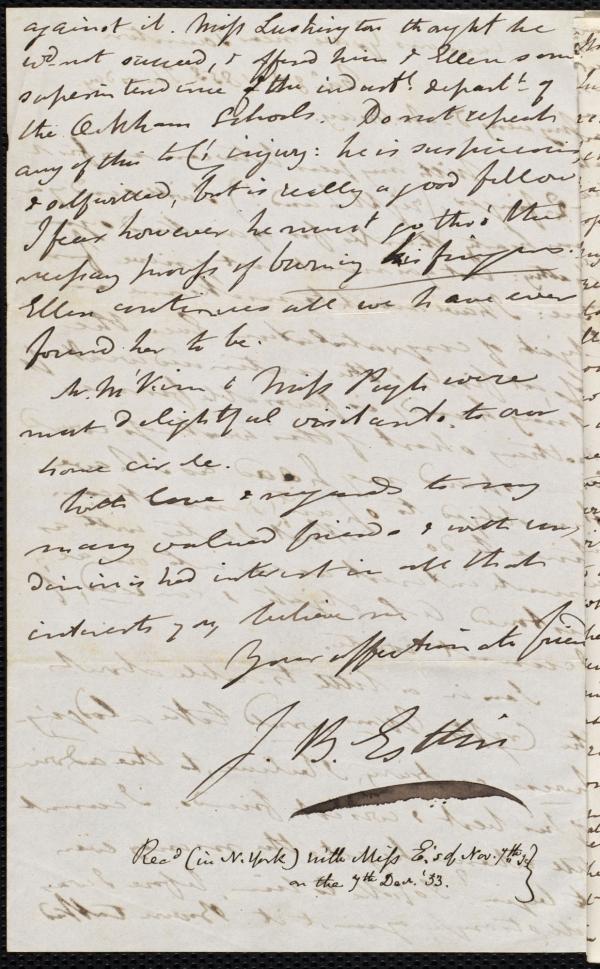 against it. Miss Lushington thought he
wd not succeed, & offered him & Ellen some
superintendence of the industl. departt. of
the Ockham Schools. Do not repeat
any of this to C's injury: he is suspicious
& selfwilled, but is really a good fellow
I fear however he must go thro' the
necessary process of burning his fingers.
Ellen continues all we have ever
found her to be.
Mr. M'Kim & Miss Pugh were
most delightful visitants to our
home circle.
With love & regards to my
many valued friends & with un-
diminished interest in all that
interests you, believe me
Your affectionate friend
J. B. Estlin
Recd (in N. York) with Miss E.'s of Nov. 7th
on the 7th Decr. '53.